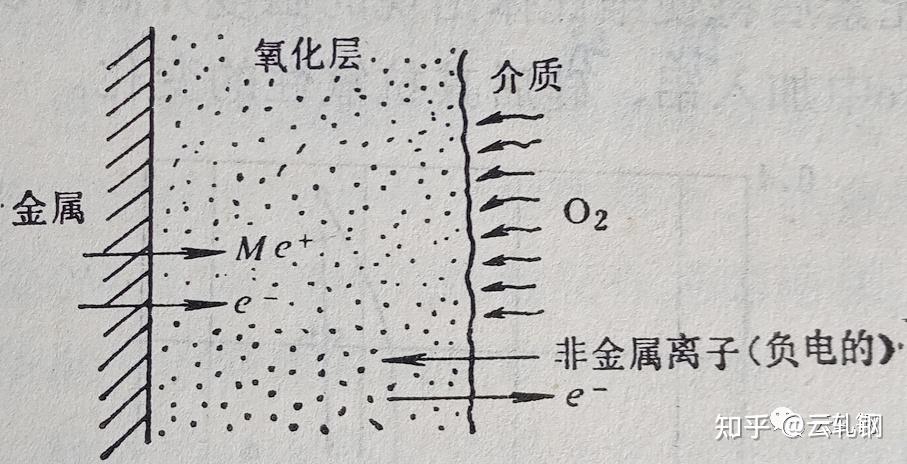 氧化层
介质
金属
O2
Me+
e-
非金属离子(负电的)
e-
知乎 @云轧钢